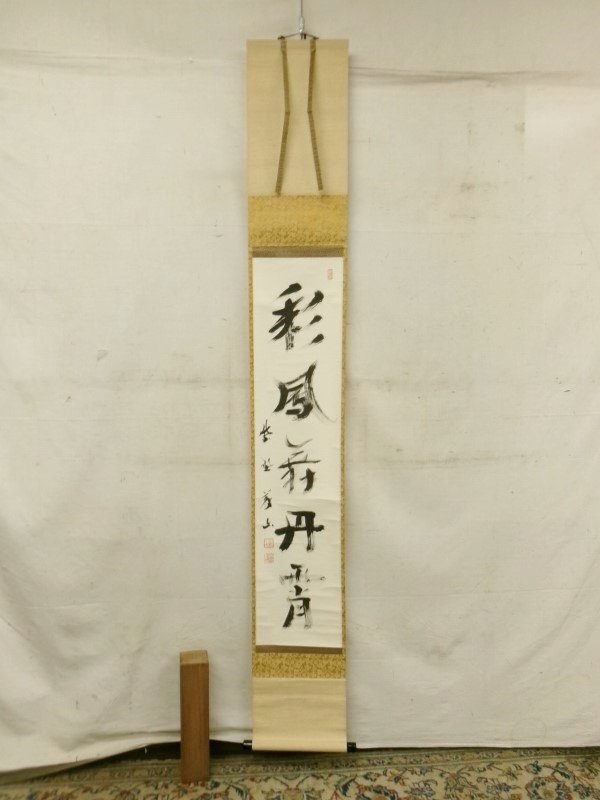 彩鳳舞丹霄
紫野義山